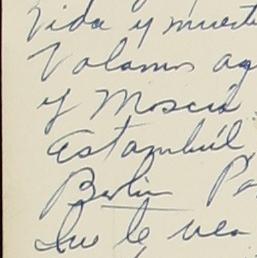 Vida y muerte
Volamos
y Moscú
Estambúl
Berlin
que le vea